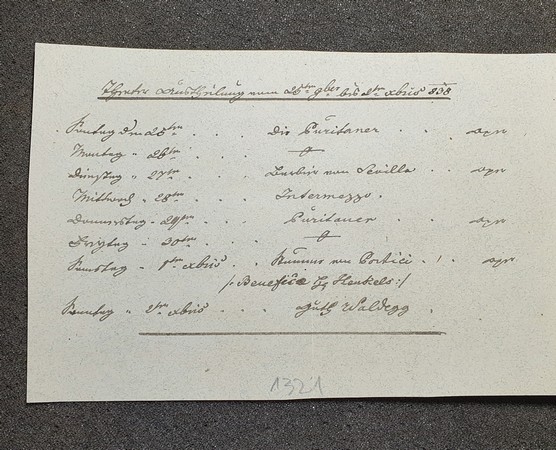 Theater Austheilung vom 25ten 9ber bis 2ten xbris 838
Sontag den 25ten . . . Die Puritaner . . opr
Montag " 26ten . . .
Dienstag " 27ten . . . Barbier von Sevilla . . opr
Mittwoch " 28ten . . . Intermezzo .
Donnerstag " 29ten . . Puritaner . . opr
Freytag " 30ten . . .
Samstag " 1ten xbris . . Stumme von Portici . . opr
/: Benefice Hr Henkels :/
Sonntag " 2ten xbris . . . Guth Waldegg .
1321